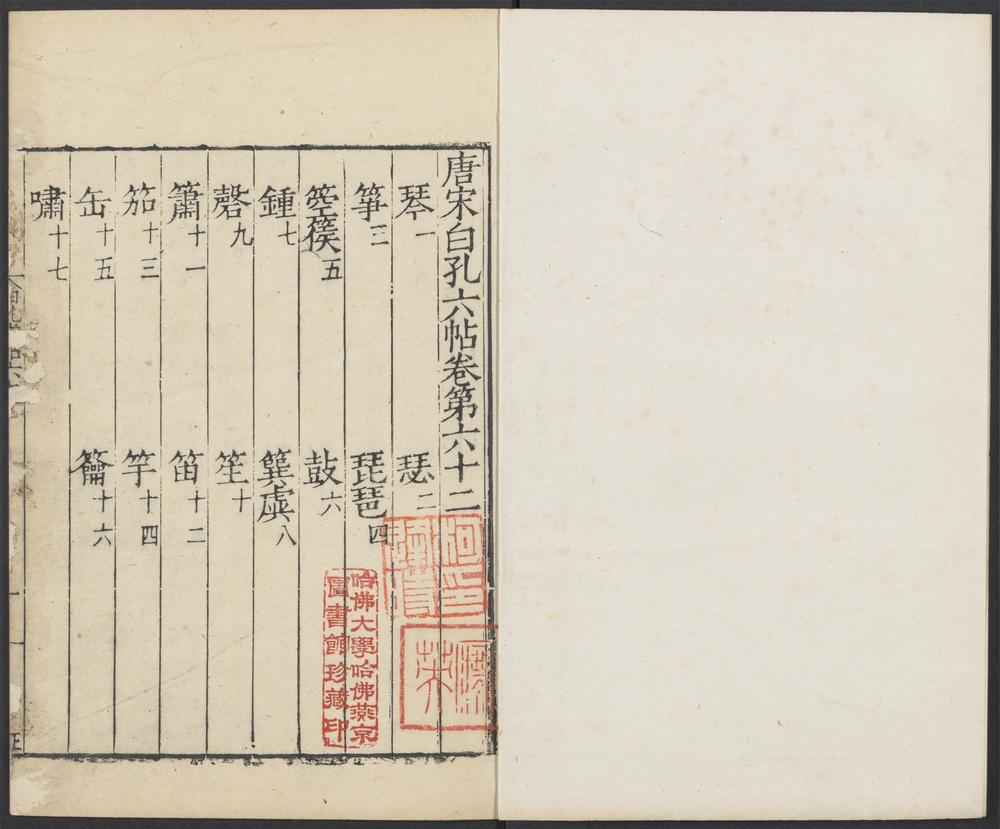 唐宋白孔六帖卷第六十二
琴一 瑟二
箏三 琵琶四
箜篌五 鼓六
鍾七 簨虡八
磬九 笙十
簫十一 笛十二
笳十三 竽十四
缶十五 籥十六
嘯十七
哈佛大學哈佛燕京
圖書館珍藏印